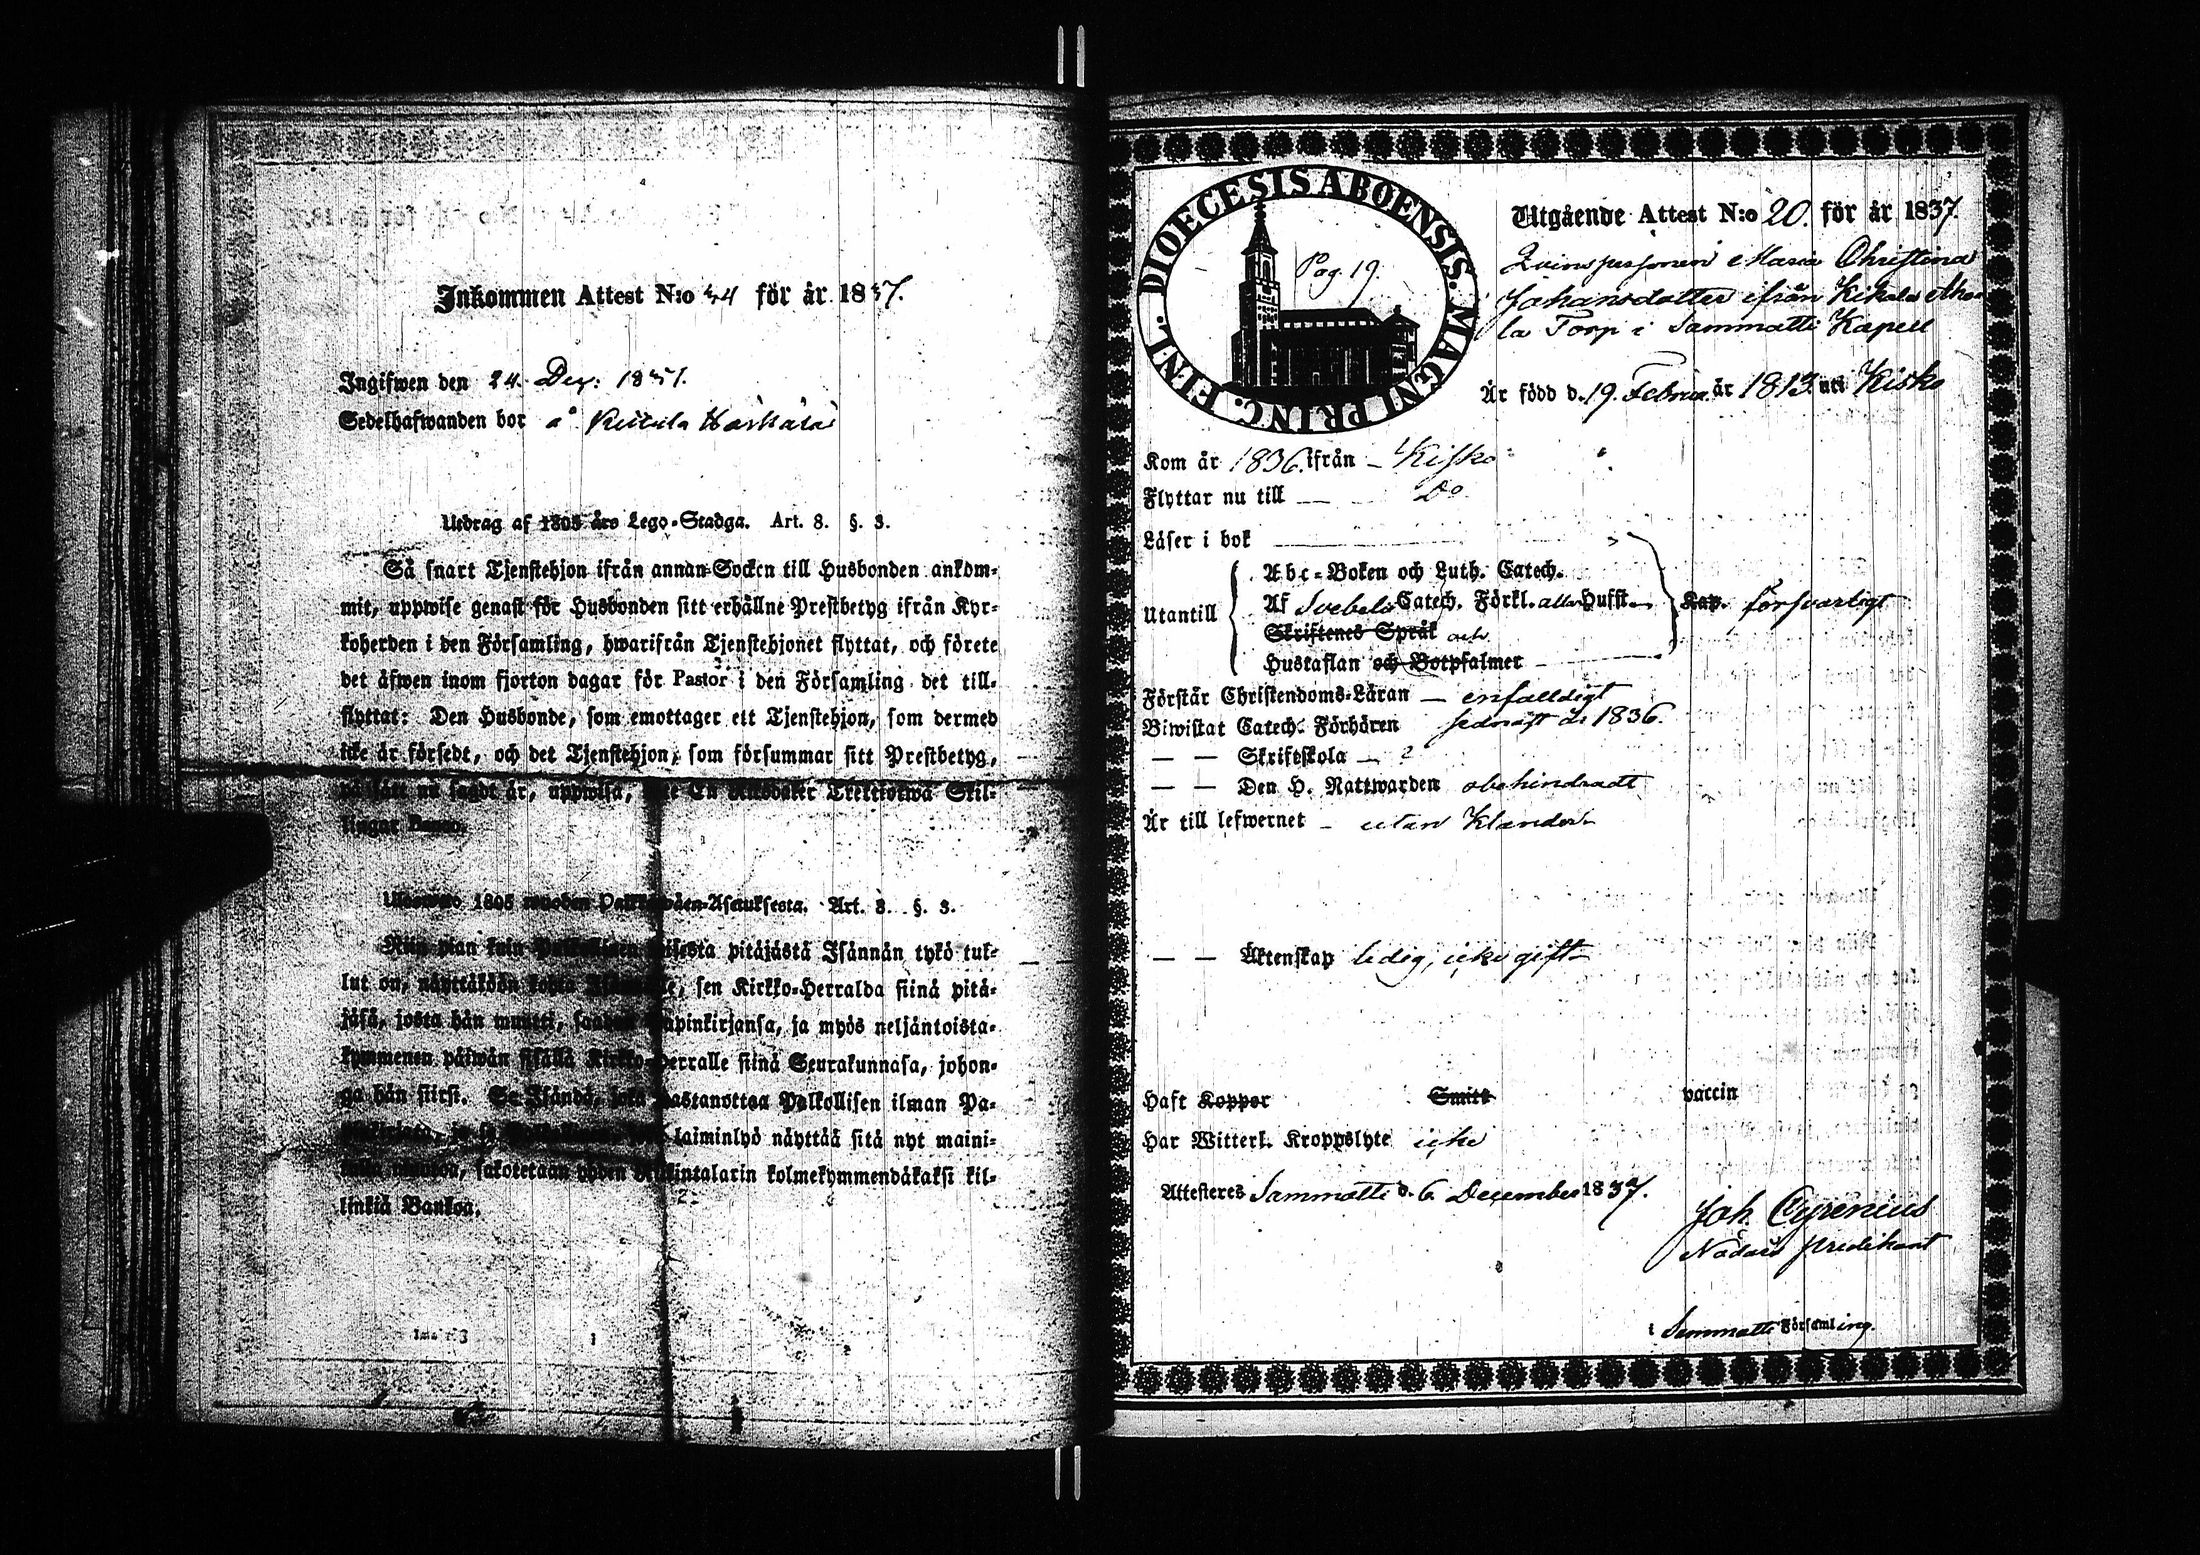 Inkommen Attest N:o 44 för år 1837.
Ingifwen den 24. Dec: 1837.
Sedelhafwanden bor å
Utdrag af 1805 års Lego-Stadga. Art. 8. §. 3.
Så snart Tjenstehjon ifrån annan Socken till Husbonden ankom-
mit, uppwise genast för Husbonden sitt erhållne Prestbetyg ifrån Kyr-
koherden i den Församling, hwarifrån Tjenstehjonet flyttat, och förete
det äfwen inom fjorton dagar för Pastor i den Församling det till-
flyttat: Den Husbonde, som emottager ett Tjenstehjon, som dermed
icke är försedt, och det Tjenstehjon, som försummar sitt Prestbetyg,
på sätt nu sagdt är, uppwisa, Trettiotwå Skil-
lingar Banco.
Ulosweto 1805 wuoden Palkkawäen-Asetuksesta. Art. 8. §. 3.
Niin pian kuin Palkollinen toisesta pitäjästä Isännän tykö tul-
lut on, näyttäköön kohta Isännälle, sen Kirkko-Herralda siinä pitä-
jäsä, josta hän muutti, saadun Papinkirjansa, ja myös neljäntoista-
kymmenen päiwän sisällä Kirkko-Herralle siinä Seurakunnasa, johon-
ga hän siirsi. Se Isändä, joka wastanottaa Palkollisen ilman Pa-
laiminlyö näyttää sitä nyt maini-
sakotetaan yhden Riikintalarin kolmekymmendäkaksi kil-
linkiä Bankoa.
DIOECESIS ABOENSIS. MAGNI PRINC. FINL.
Pag. 19.
Utgående Attest N:o 20. för år 1837.
Qvinspersonen Maria Christina
Johansdotter ifrån Kikala Aho-
la Torp i Sammatti Kapell
Är född d. 19. Februa. år 1813. uti Kisko
Kom år 1836. ifrån — Kisko
Flyttar nu till — Do
Läser i bok
Utantill
Abc-Boken och Luth. Catech.
Af Svebeli Catech. Förkl. alla Hufst. Kap. försvarligt
Skriftenes Språk och
Hustaflan och Botpsalmer
Förstår Christendoms-Läran — enfalldigt
Biwistat Catech. Förhören sednast år 1836.
— — Skriftskola —
— — Den H. Nattwarden obehindradt
Är till lefwernet — utan Klander
— — Äktenskap ledig, icke gift
Haft Koppor Smitt vaccin
Har Witterl. Kroppslyte icke
Attesteres Sammatti d. 6 December 1837.
Joh. Cyrenius
Nådårs predikant
i Sammatti Församling.